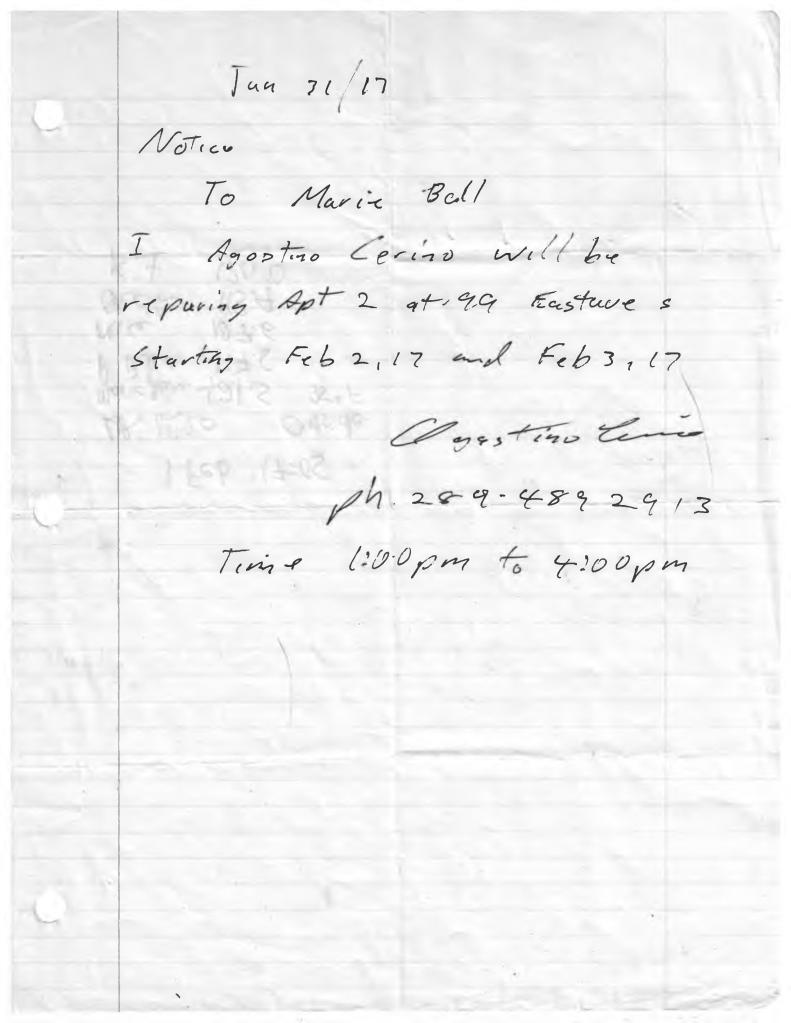 Jan 31/17
Notice
To Marie Ball
I Agostino Cerino will be
repairing Apt 2 at 99 Eastave s
Starting Feb 2, 17 and Feb 3, 17
Agostino Cerino
ph. 289-489 2913
Time 1:00pm to 4:00pm